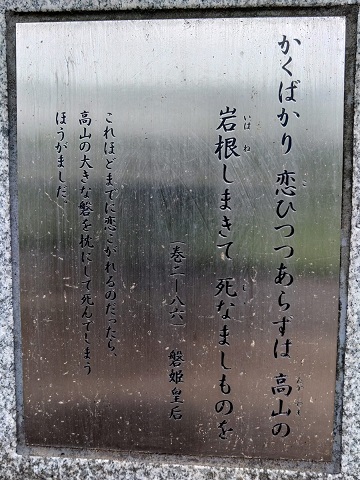 かくばかり 恋ひつつあらずは 高山の
岩根しまきて 死なましものを
(巻二ー八六) 磐姫皇后
これほどまでに恋こがれるのだったら、
高山の大きな磐を枕にして死んでしまう
ほうがましだ。